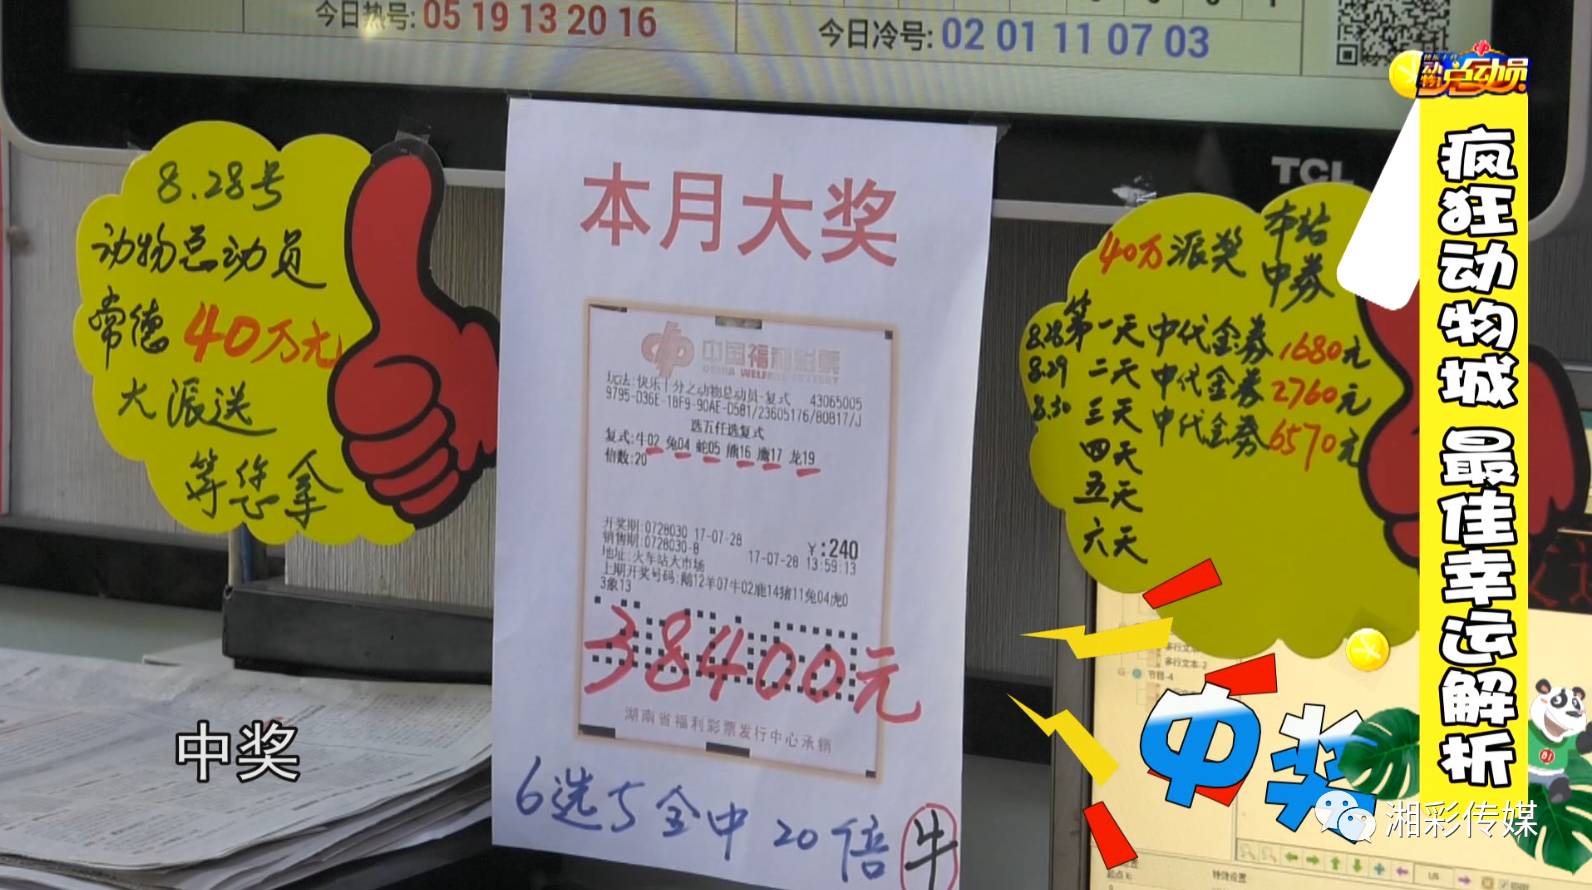 今日热号: 05 19 13 20 16
今日冷号: 02 01 11 07 03
动物总动员
TCL
8.28号
动物总动员
常德 40万元
大派送
等您拿
本月大奖
中国福利彩票
CHINA WELFARE LOTTERY
玩法:快乐十分之动物总动员-复式 43065005
9795-D36E-18F9-90AE-D581/23605176/80B17/J
选五任选复式
复式:牛02 兔04 蛇05 熊16 鹰17 龙19
倍数:20
开奖期:0728030 17-07-28
¥:240
销售期:0728030-8 17-07-28 13:59:13
地址:火车站大市场
上期开奖号码:鹅12羊07牛02鹿14猪11兔04虎0
3象13
38400元
湖南省福利彩票发行中心承销
6选5全中 20倍 牛
40万派奖 本站
中券
8.28 第一天 中代金券 1680元
8.29 二天 中代金券 2760元
8.30 三天 中代金券 6570元
四天
五天
六天
疯狂动物城 最佳幸运解析
多行文本-2
节目-4
中奖
中奖
湘彩传媒
特效设置